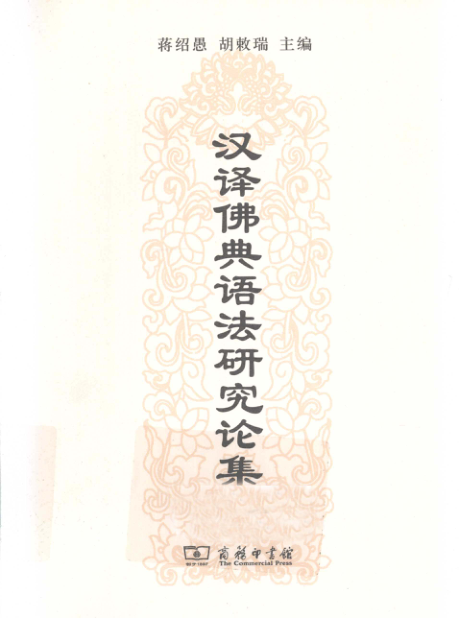 蒋绍愚 胡敕瑞 主编
汉译佛典语法研究论集
商務印書館
The Commercial Press